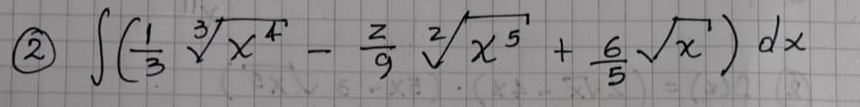 ② ∫(1/3 ∛x⁴ - 2/9 ²√x⁵ + 6/5 √x) dx